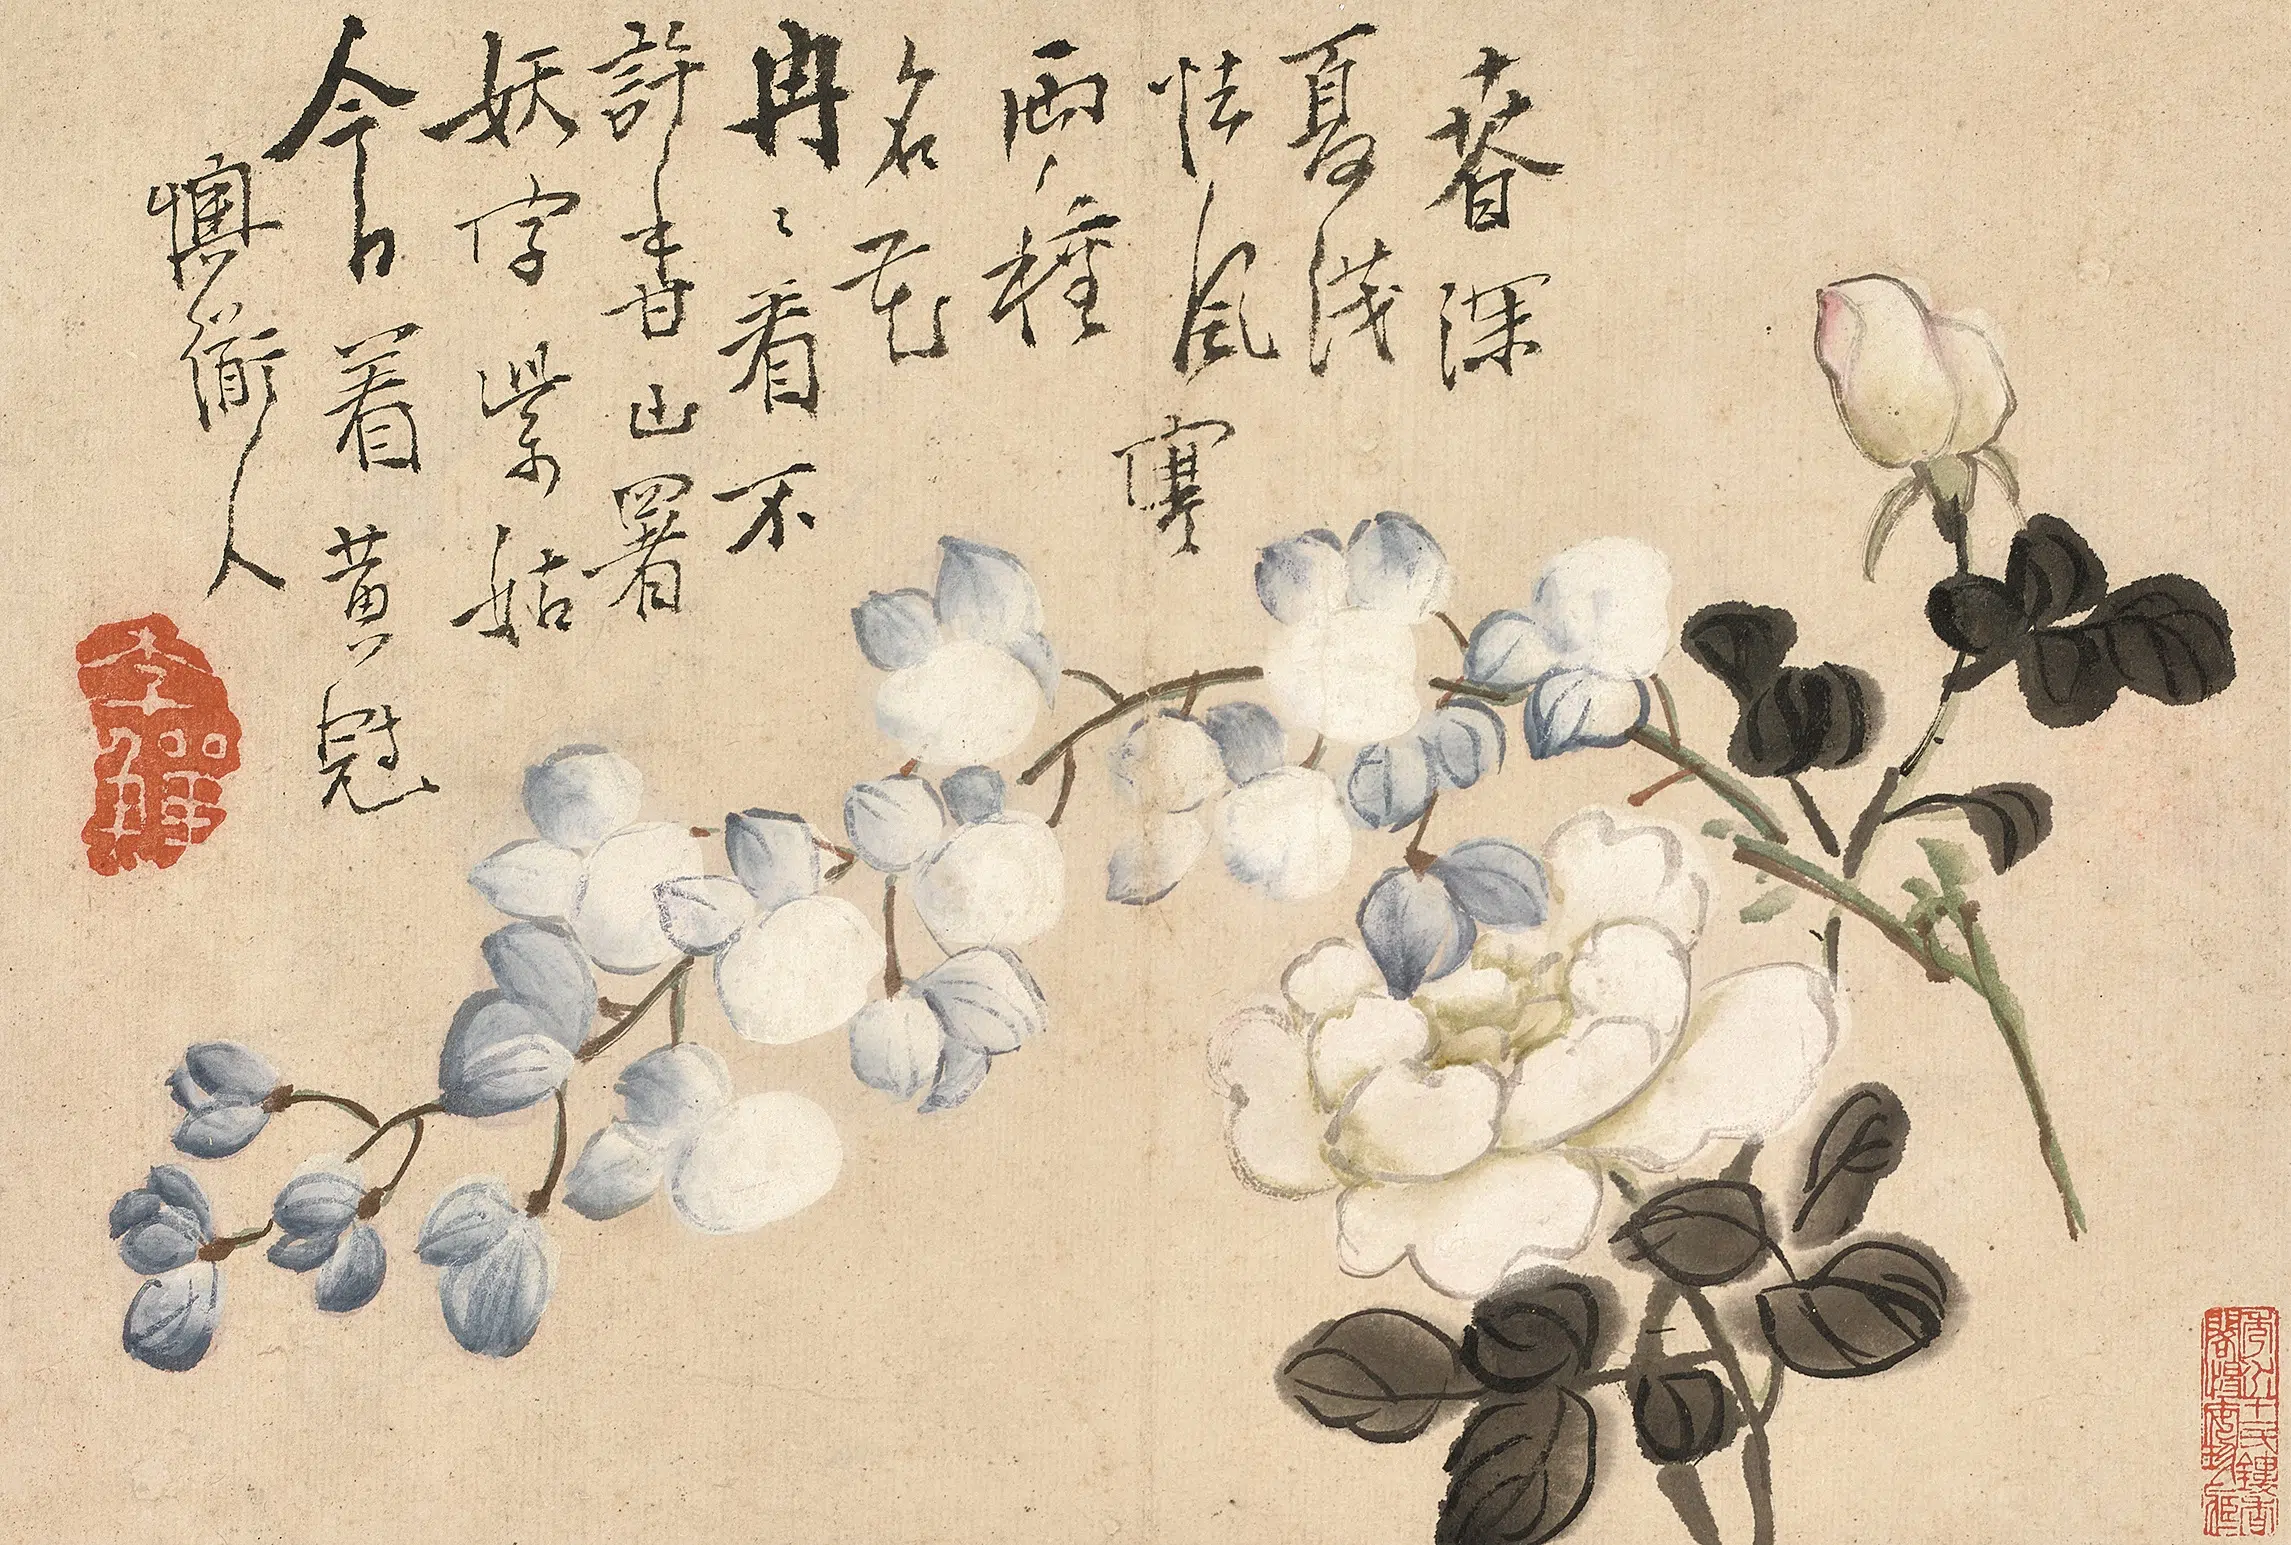 春深
夏淺
怯風寒
兩〻種
名花
冉〻看不
許山署
妖字紫姑
今日着黃冠
懊道人
李鱓